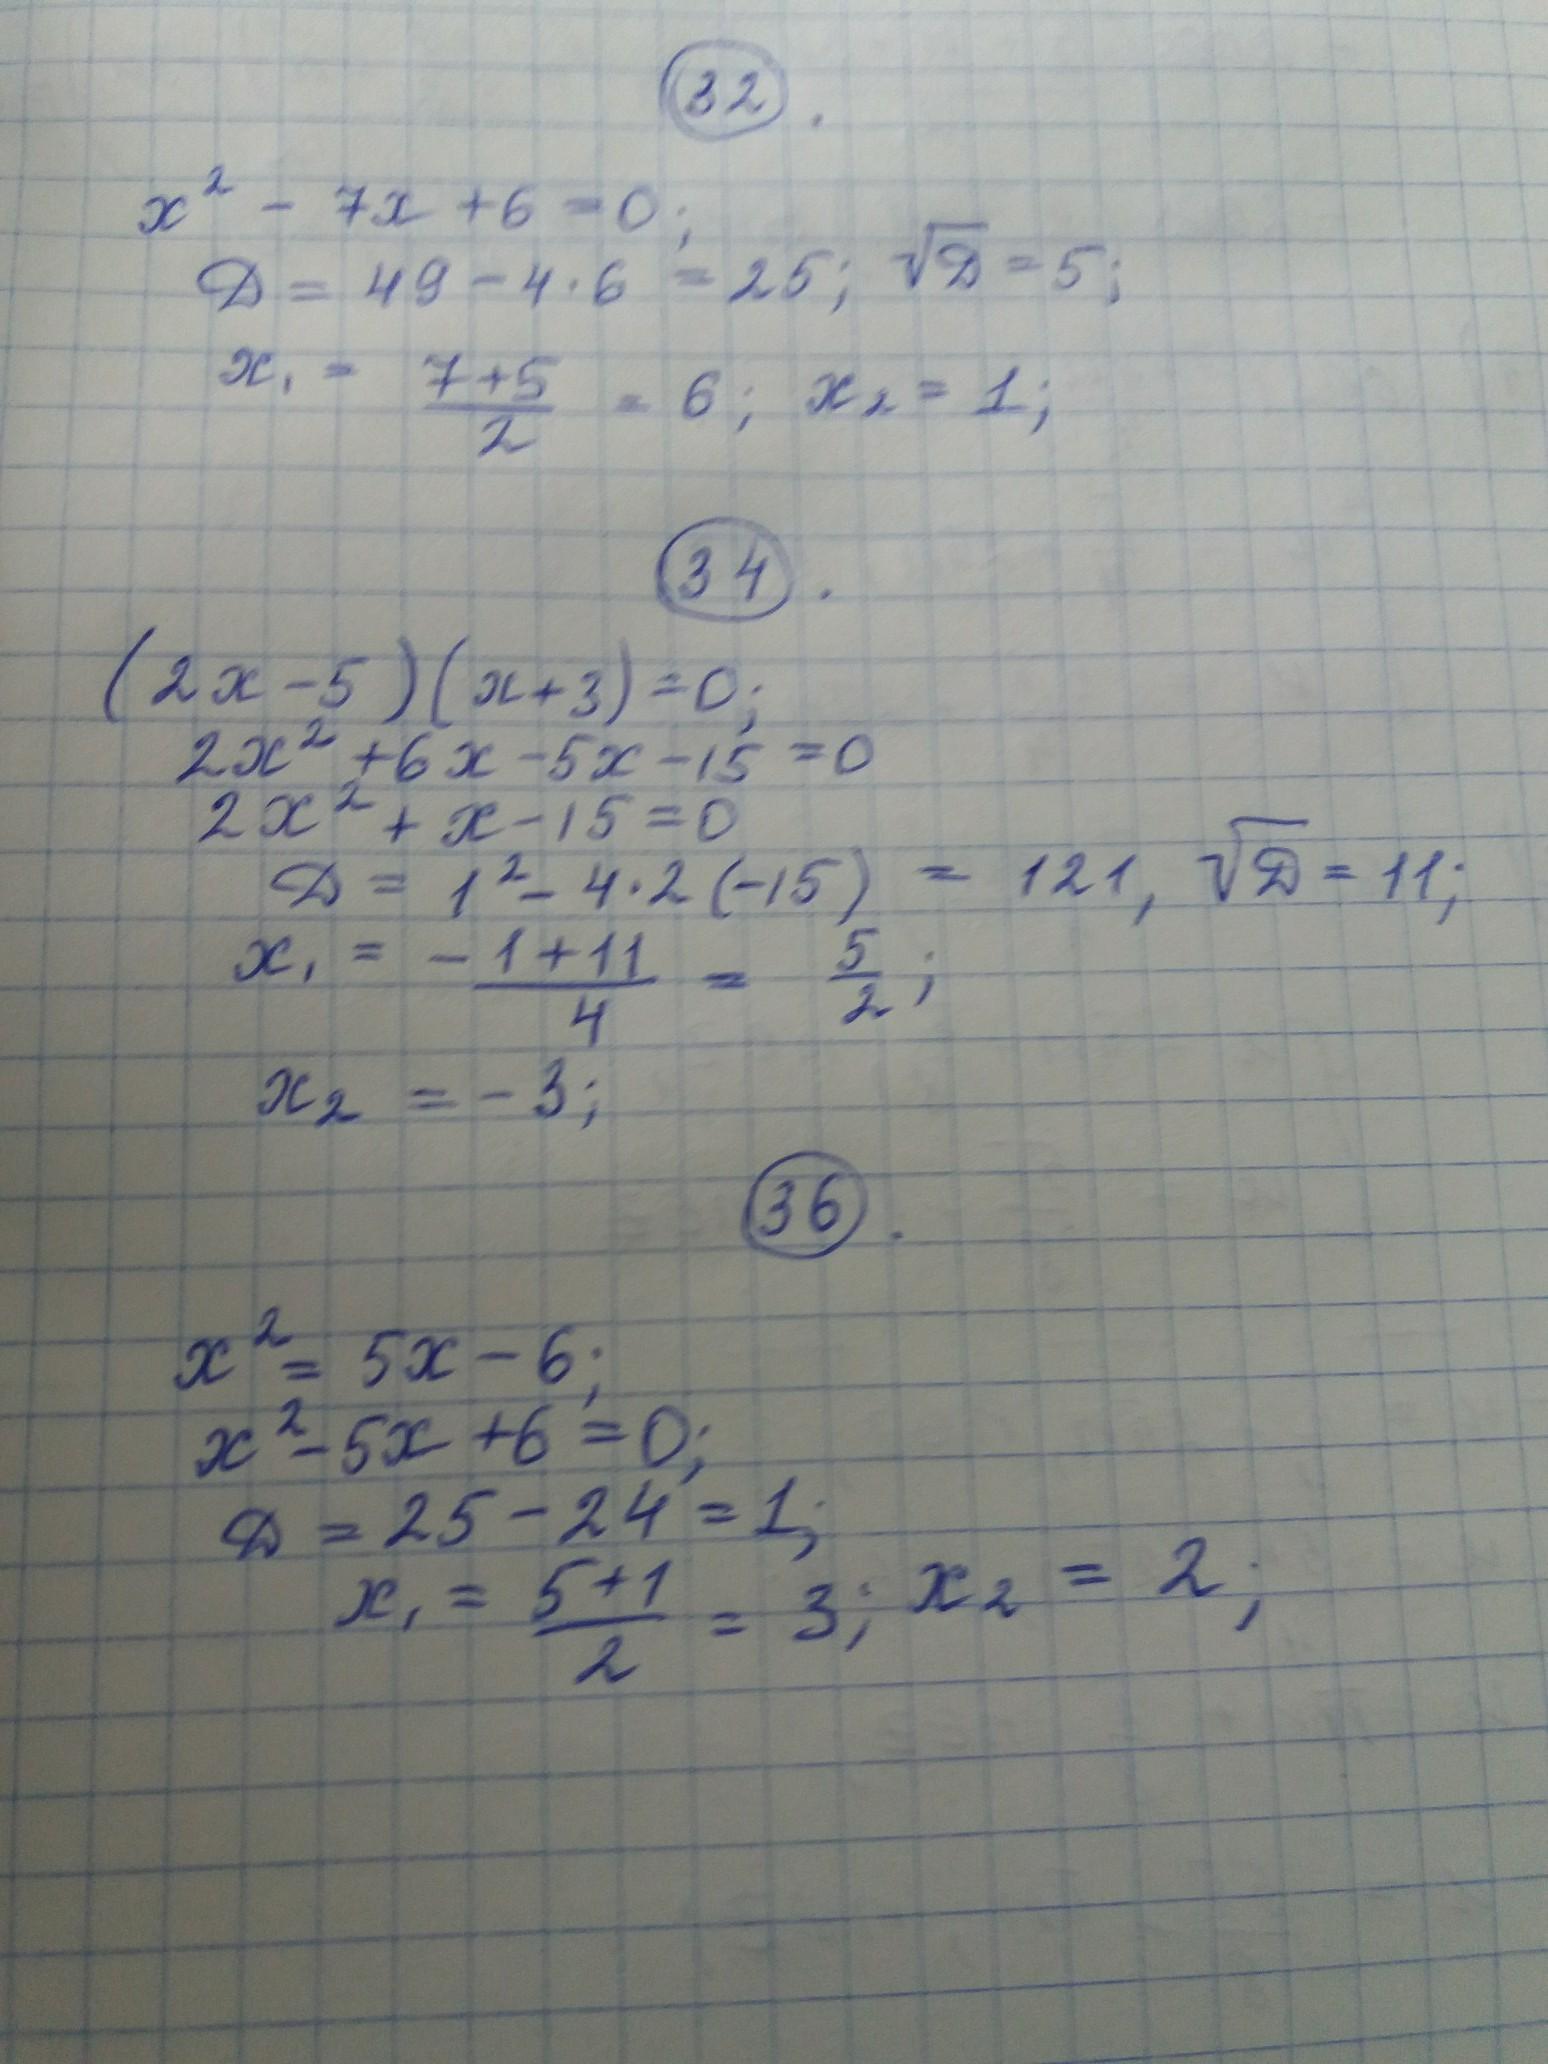 32.
x² - 7x + 6 = 0;
D = 49 - 4·6 = 25; √D = 5;
x₁ = (7+5)/2 = 6; x₂ = 1;
34.
(2x - 5)(x + 3) = 0;
2x² + 6x - 5x - 15 = 0
2x² + x - 15 = 0
D = 1² - 4·2(-15) = 121, √D = 11;
x₁ = -(1+11)/4 = 5/2;
x₂ = -3;
36.
x² = 5x - 6;
x² - 5x + 6 = 0;
D = 25 - 24 = 1;
x₁ = (5+1)/2 = 3; x₂ = 2;